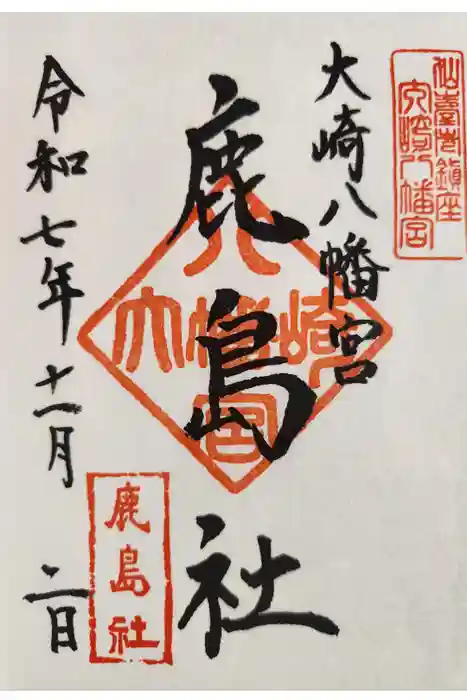 仙臺總鎮座
大崎八幡宮
大崎八幡宮
鹿島社
八
大幡崎
宮
鹿島社
令和七年十一月二日